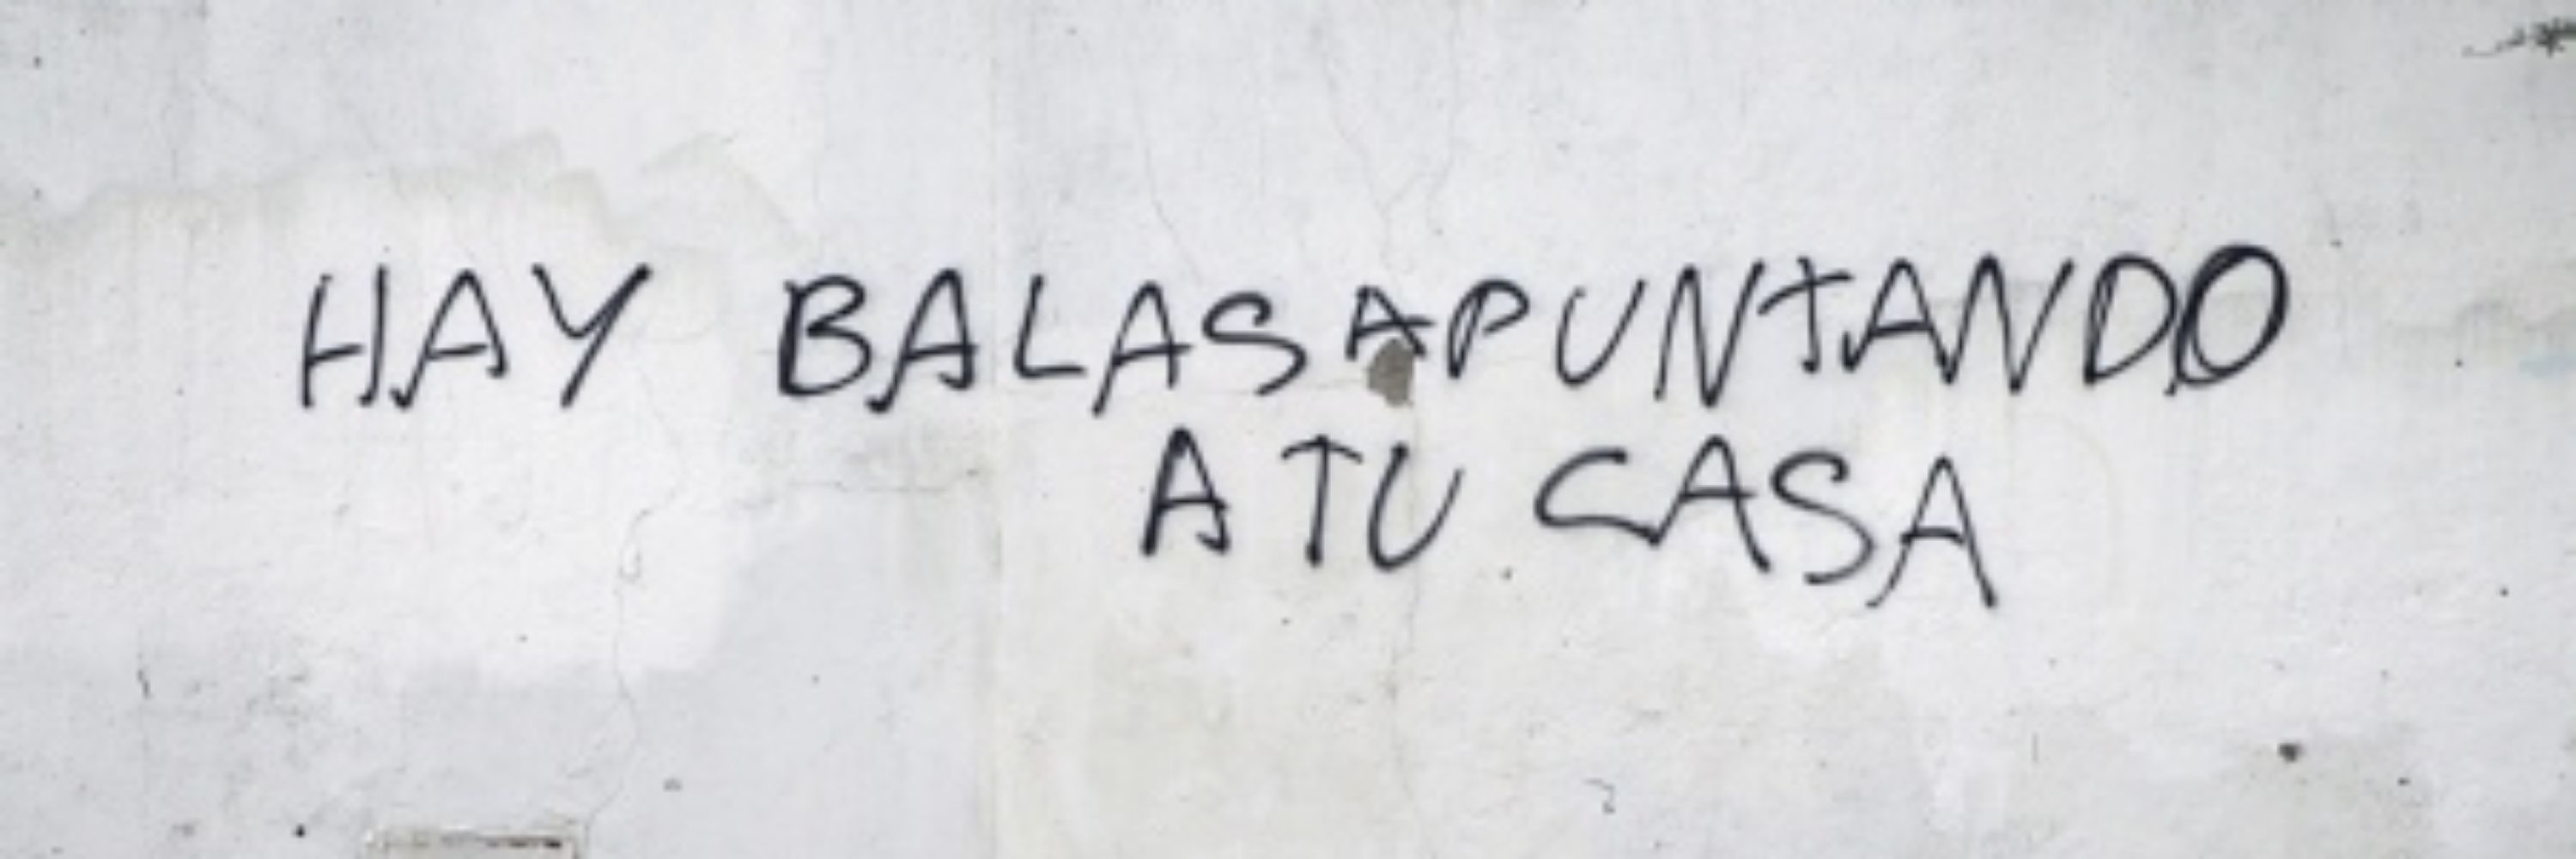 HAY BALAS APUNTANDO
A TU CASA